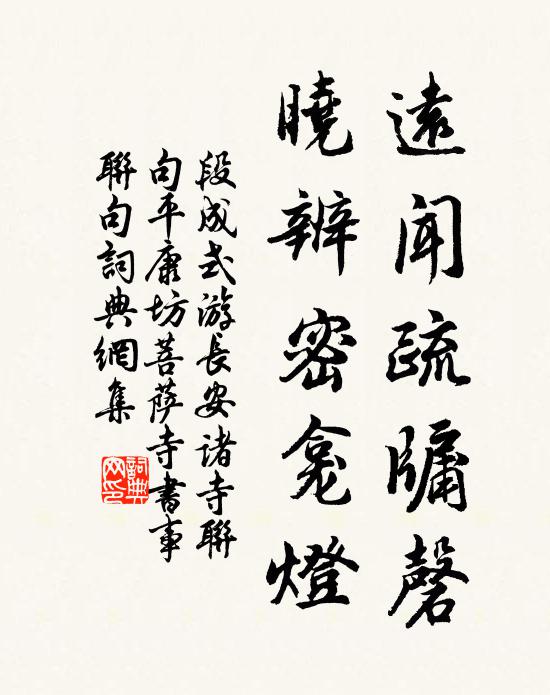 遠聞疏牗磬
曉辨密龕燈
段成式游長安諸寺聯
句平康坊菩薩寺書事
聯句詞典網集
詞典
网印